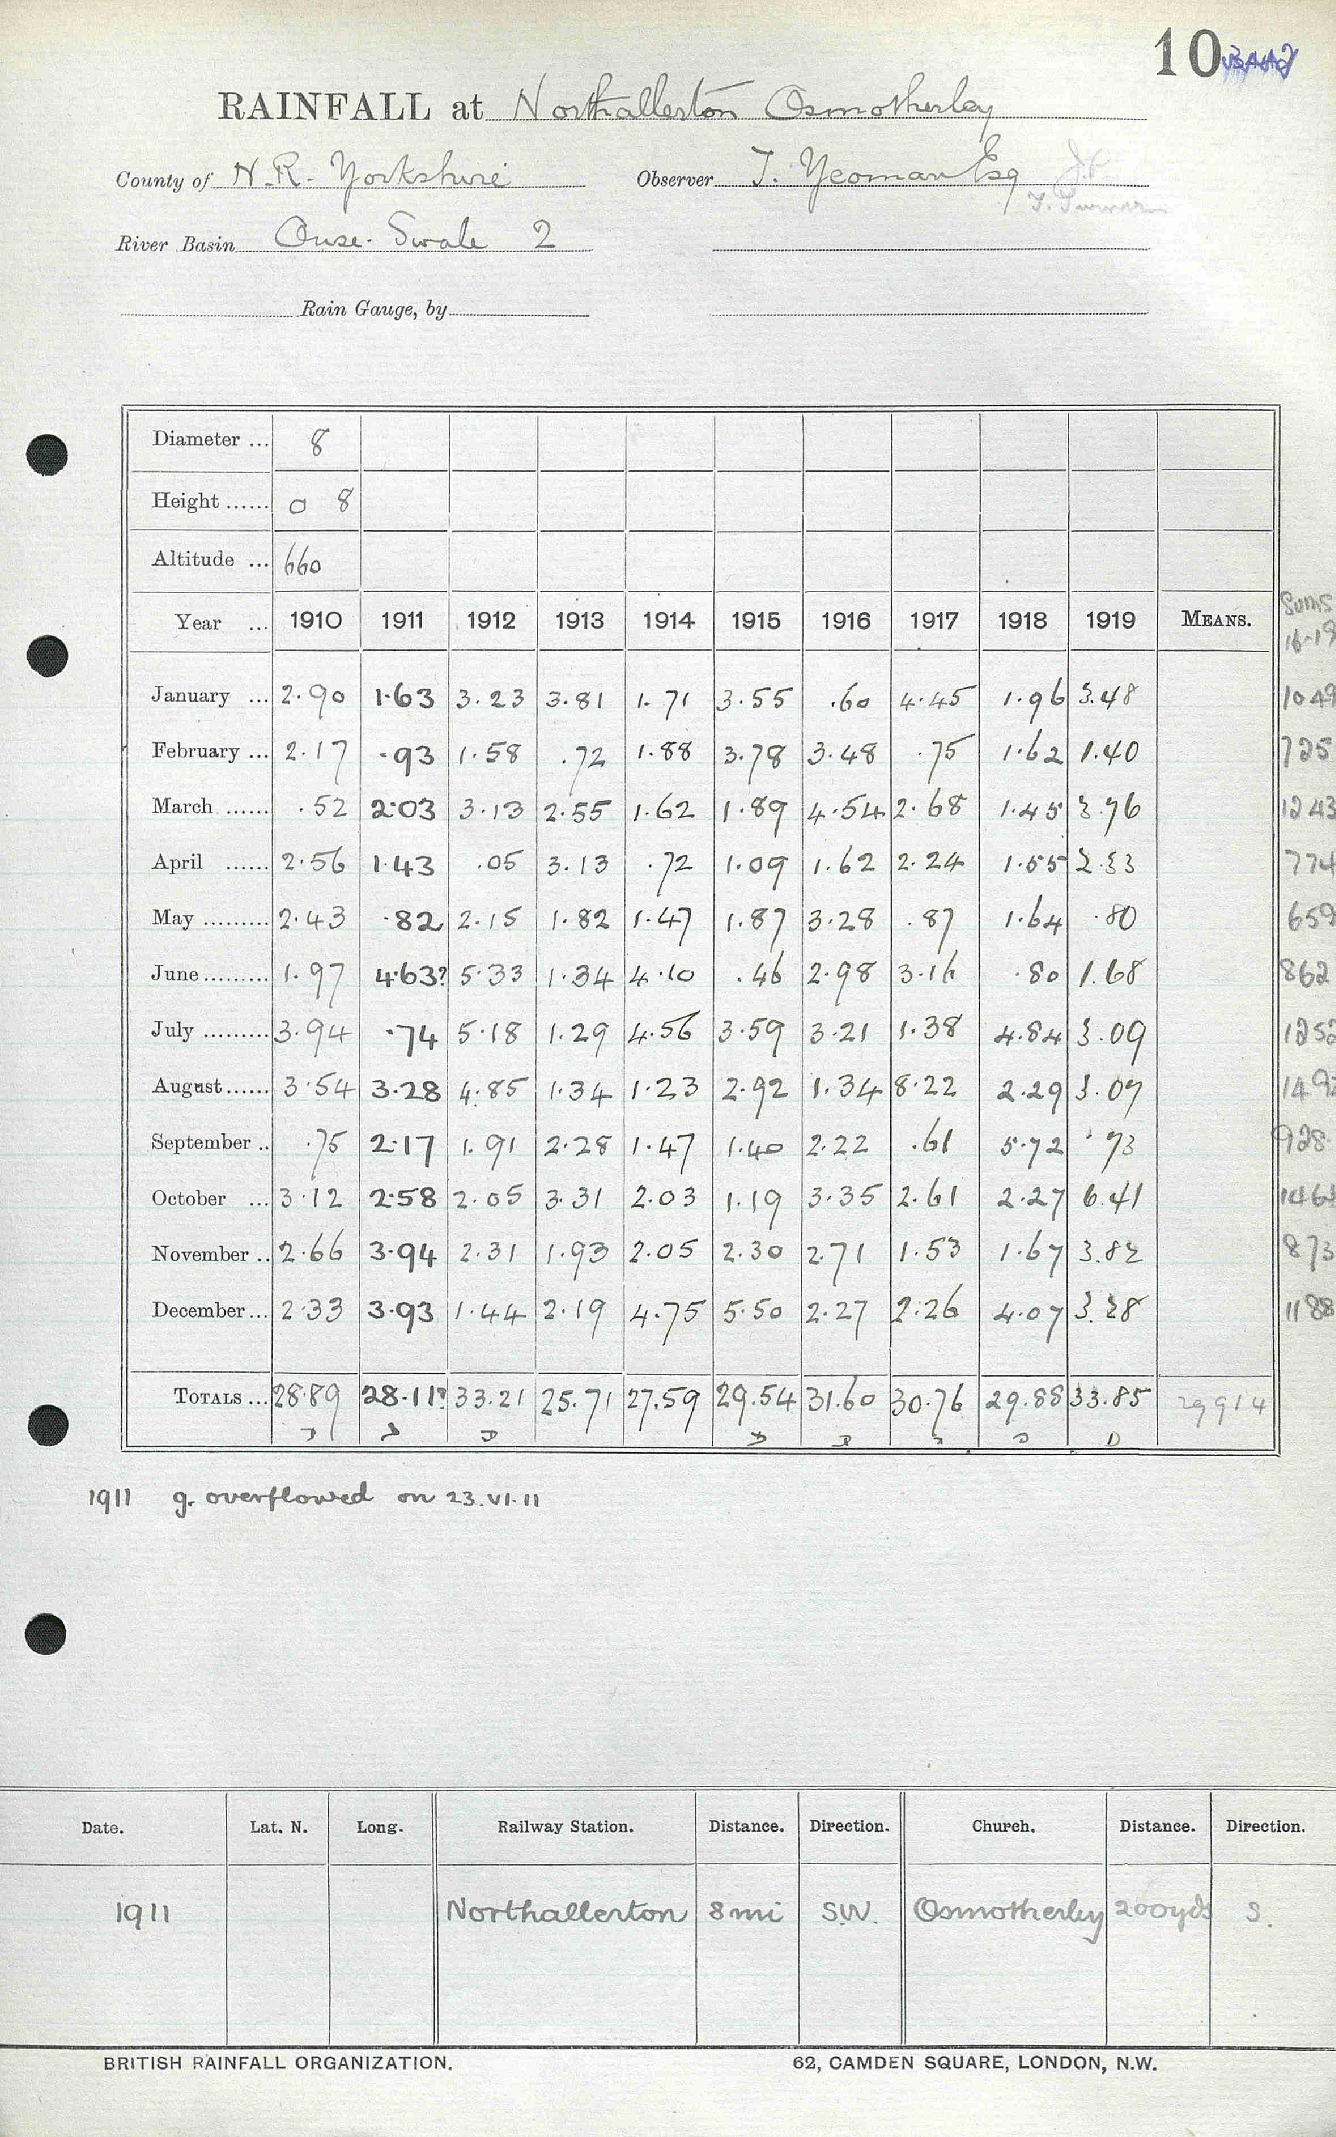 10
RAINFALL at Northallerton Osmotherley
County of N.R. Yorkshire Observer T. Yeoman Esq J.P.
River Basin Ouse-Swale 2
Rain Gauge, by
Diameter ... 8
Height ...... 0 8
Altitude ... 660
Year ... 1910 1911 1912 1913 1914 1915 1916 1917 1918 1919 MEANS. Sums 16-19
January ... 2.90 1.63 3.23 3.81 1.71 3.55 .60 4.45 1.96 3.48 1049
February ... 2.17 .93 1.58 .72 1.88 3.78 3.48 .75 1.62 1.40 725
March ...... .52 2.03 3.13 2.55 1.62 1.89 4.54 2.68 1.45 3.76 1243
April ...... 2.56 1.43 .05 3.13 .72 1.09 1.62 2.24 1.55 2.33 774
May ......... 2.43 .82 2.15 1.82 1.47 1.87 3.28 .87 1.64 .80 659
June ......... 1.97 4.63? 5.33 1.34 4.10 .46 2.98 3.16 .80 1.68 862
July ......... 3.94 .74 5.18 1.29 4.56 3.59 3.21 1.38 4.84 3.09 1252
August ...... 3.54 3.28 4.85 1.34 1.23 2.92 1.34 8.22 2.29 3.07 1492
September .. .75 2.17 1.91 2.28 1.47 1.40 2.22 .61 5.72 .73 928
October ... 3.12 2.58 2.05 3.31 2.03 1.19 3.35 2.61 2.27 6.41 1464
November .. 2.66 3.94 2.31 1.93 2.05 2.30 2.71 1.53 1.67 3.82 973
December ... 2.33 3.93 1.44 2.19 4.75 5.50 2.27 2.26 4.07 3.28 1188
TOTALS ... 28.89 28.11? 33.21 25.71 27.59 29.54 31.60 30.76 29.88 33.85 29914
D D D D D D D D
1911 g. overflowed on 23.VI.11
Date. Lat. N. Long. Railway Station. Distance. Direction. Church. Distance. Direction.
1911 Northallerton 8 mi S.W. Osmotherley 200 yds S.
BRITISH RAINFALL ORGANIZATION. 62, CAMDEN SQUARE, LONDON, N.W.